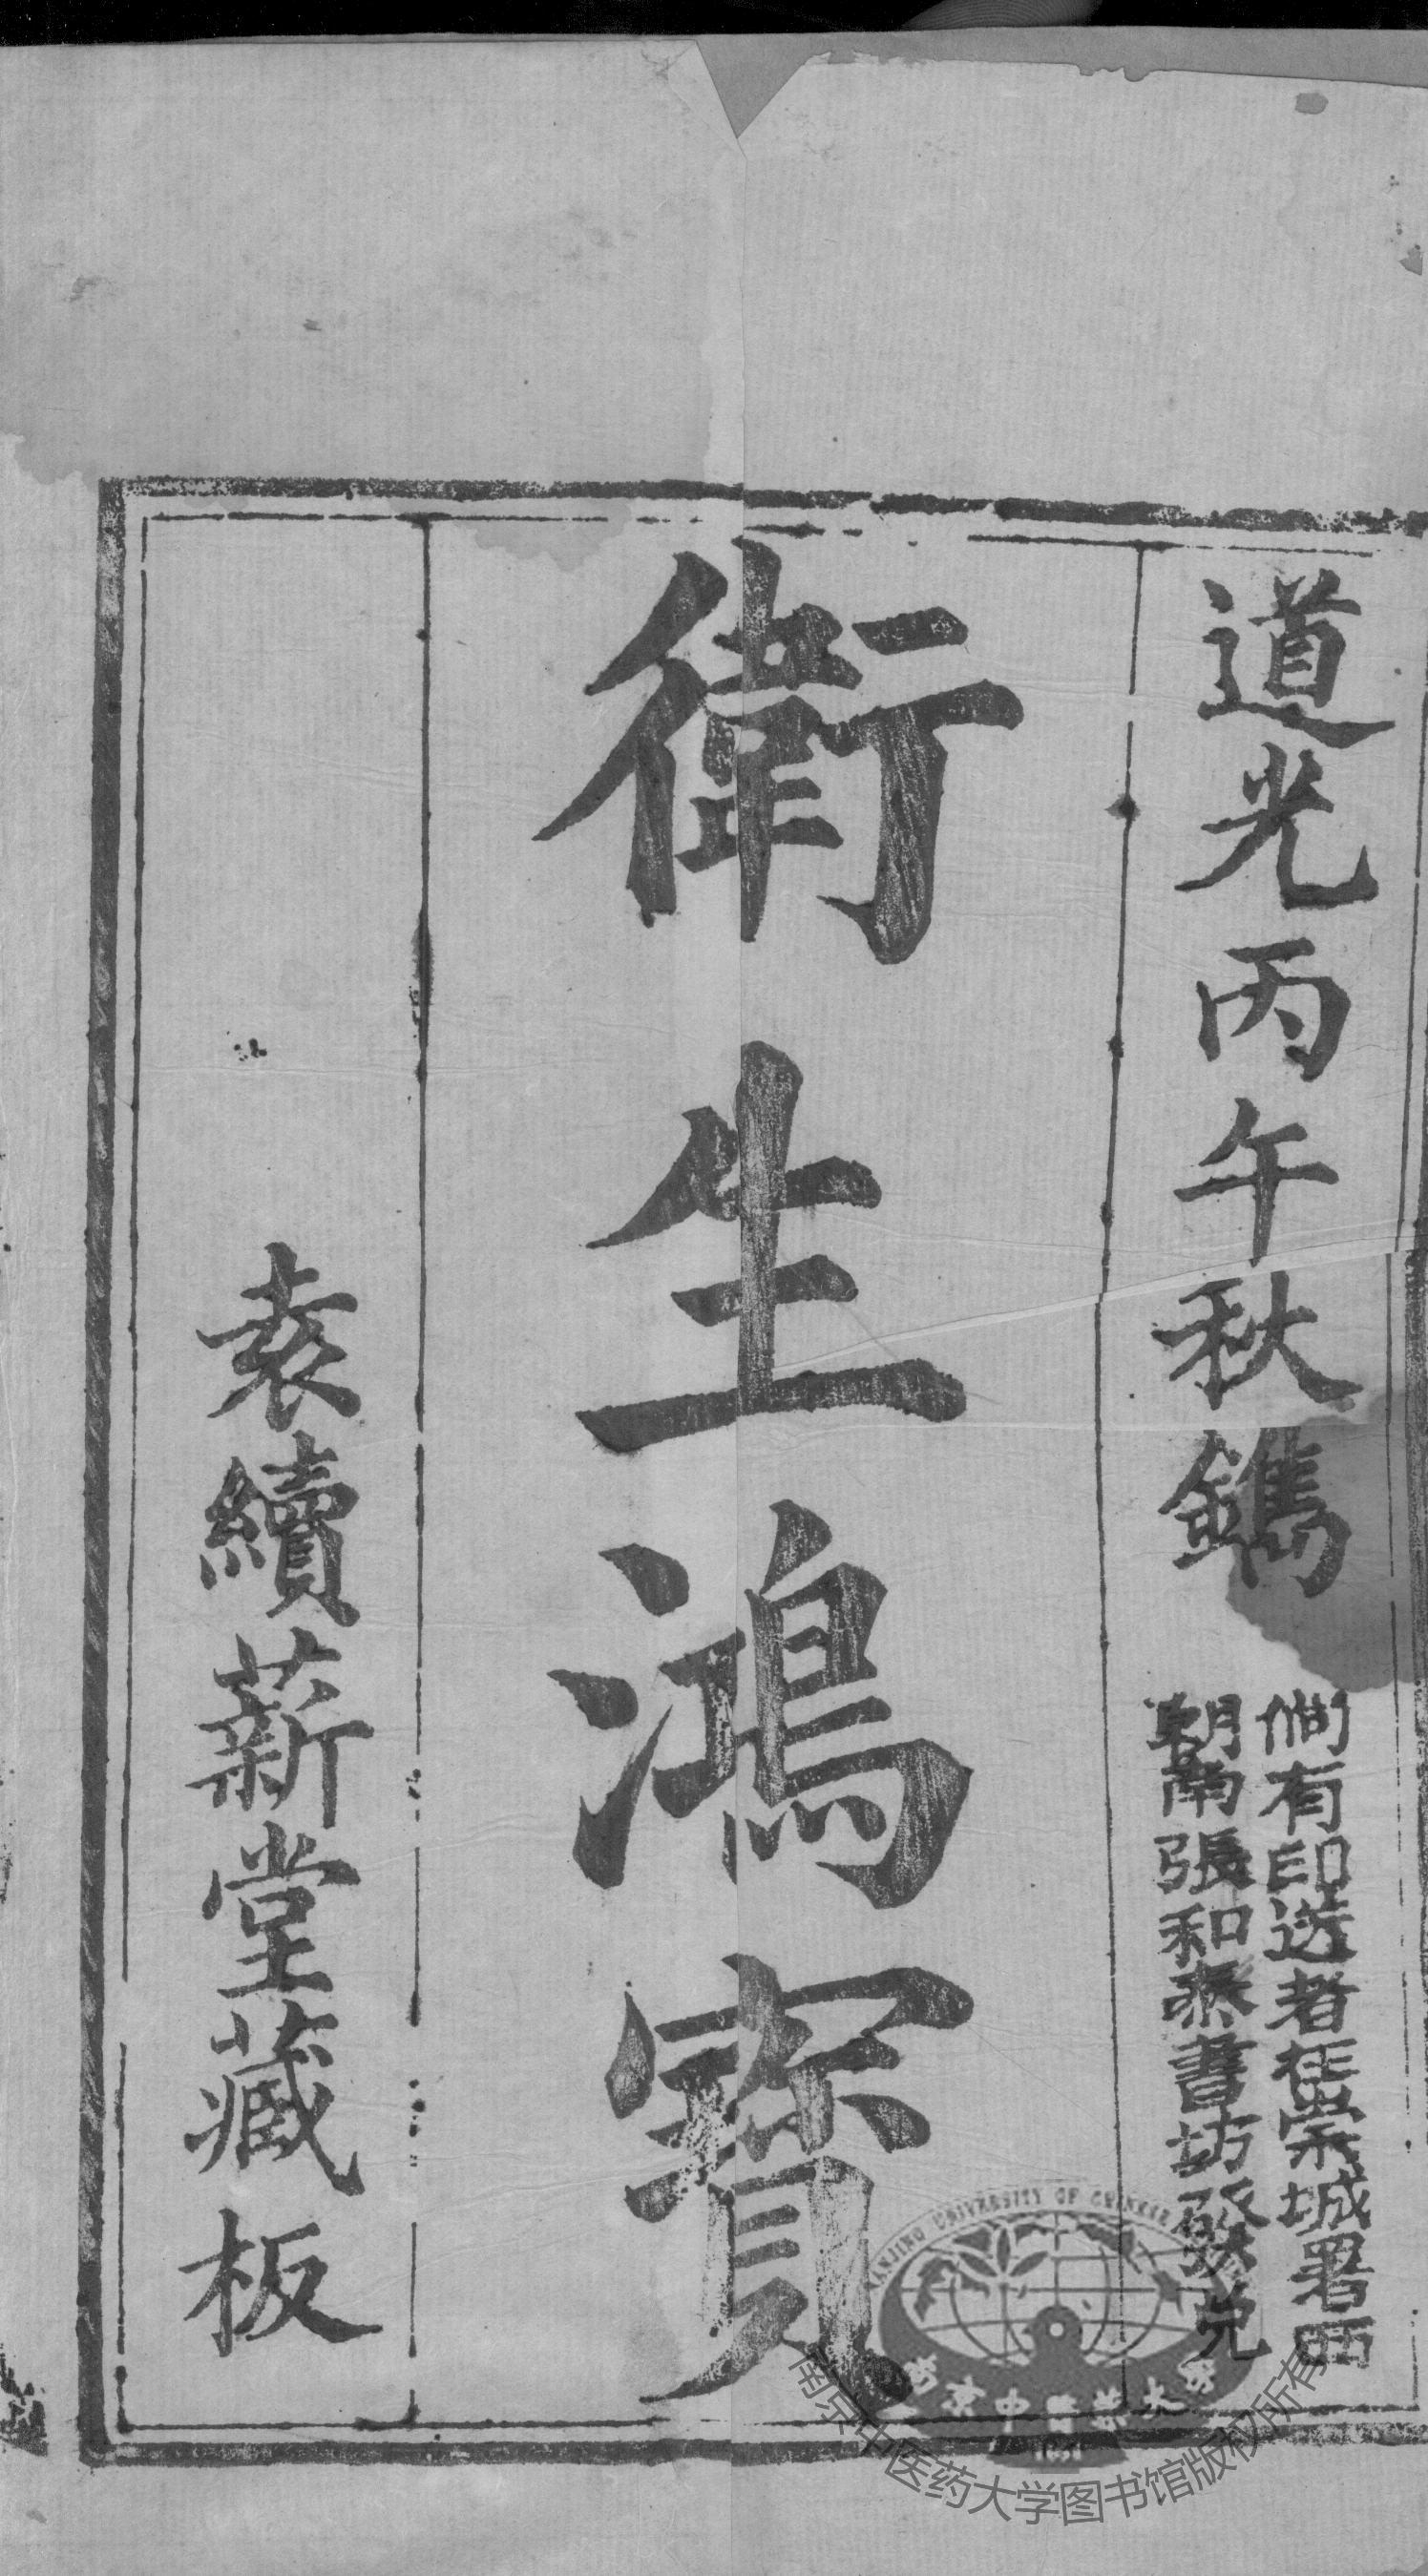 道光丙午秋鐫
倘有印送者在崇城署西
朝南張和泰書坊發兌
衛生鴻寶
袁續薪堂藏板
NANJING UNIVERSITY OF CHINESE
南京中醫藥大學
1954
南京中医药大学图书馆版权所有